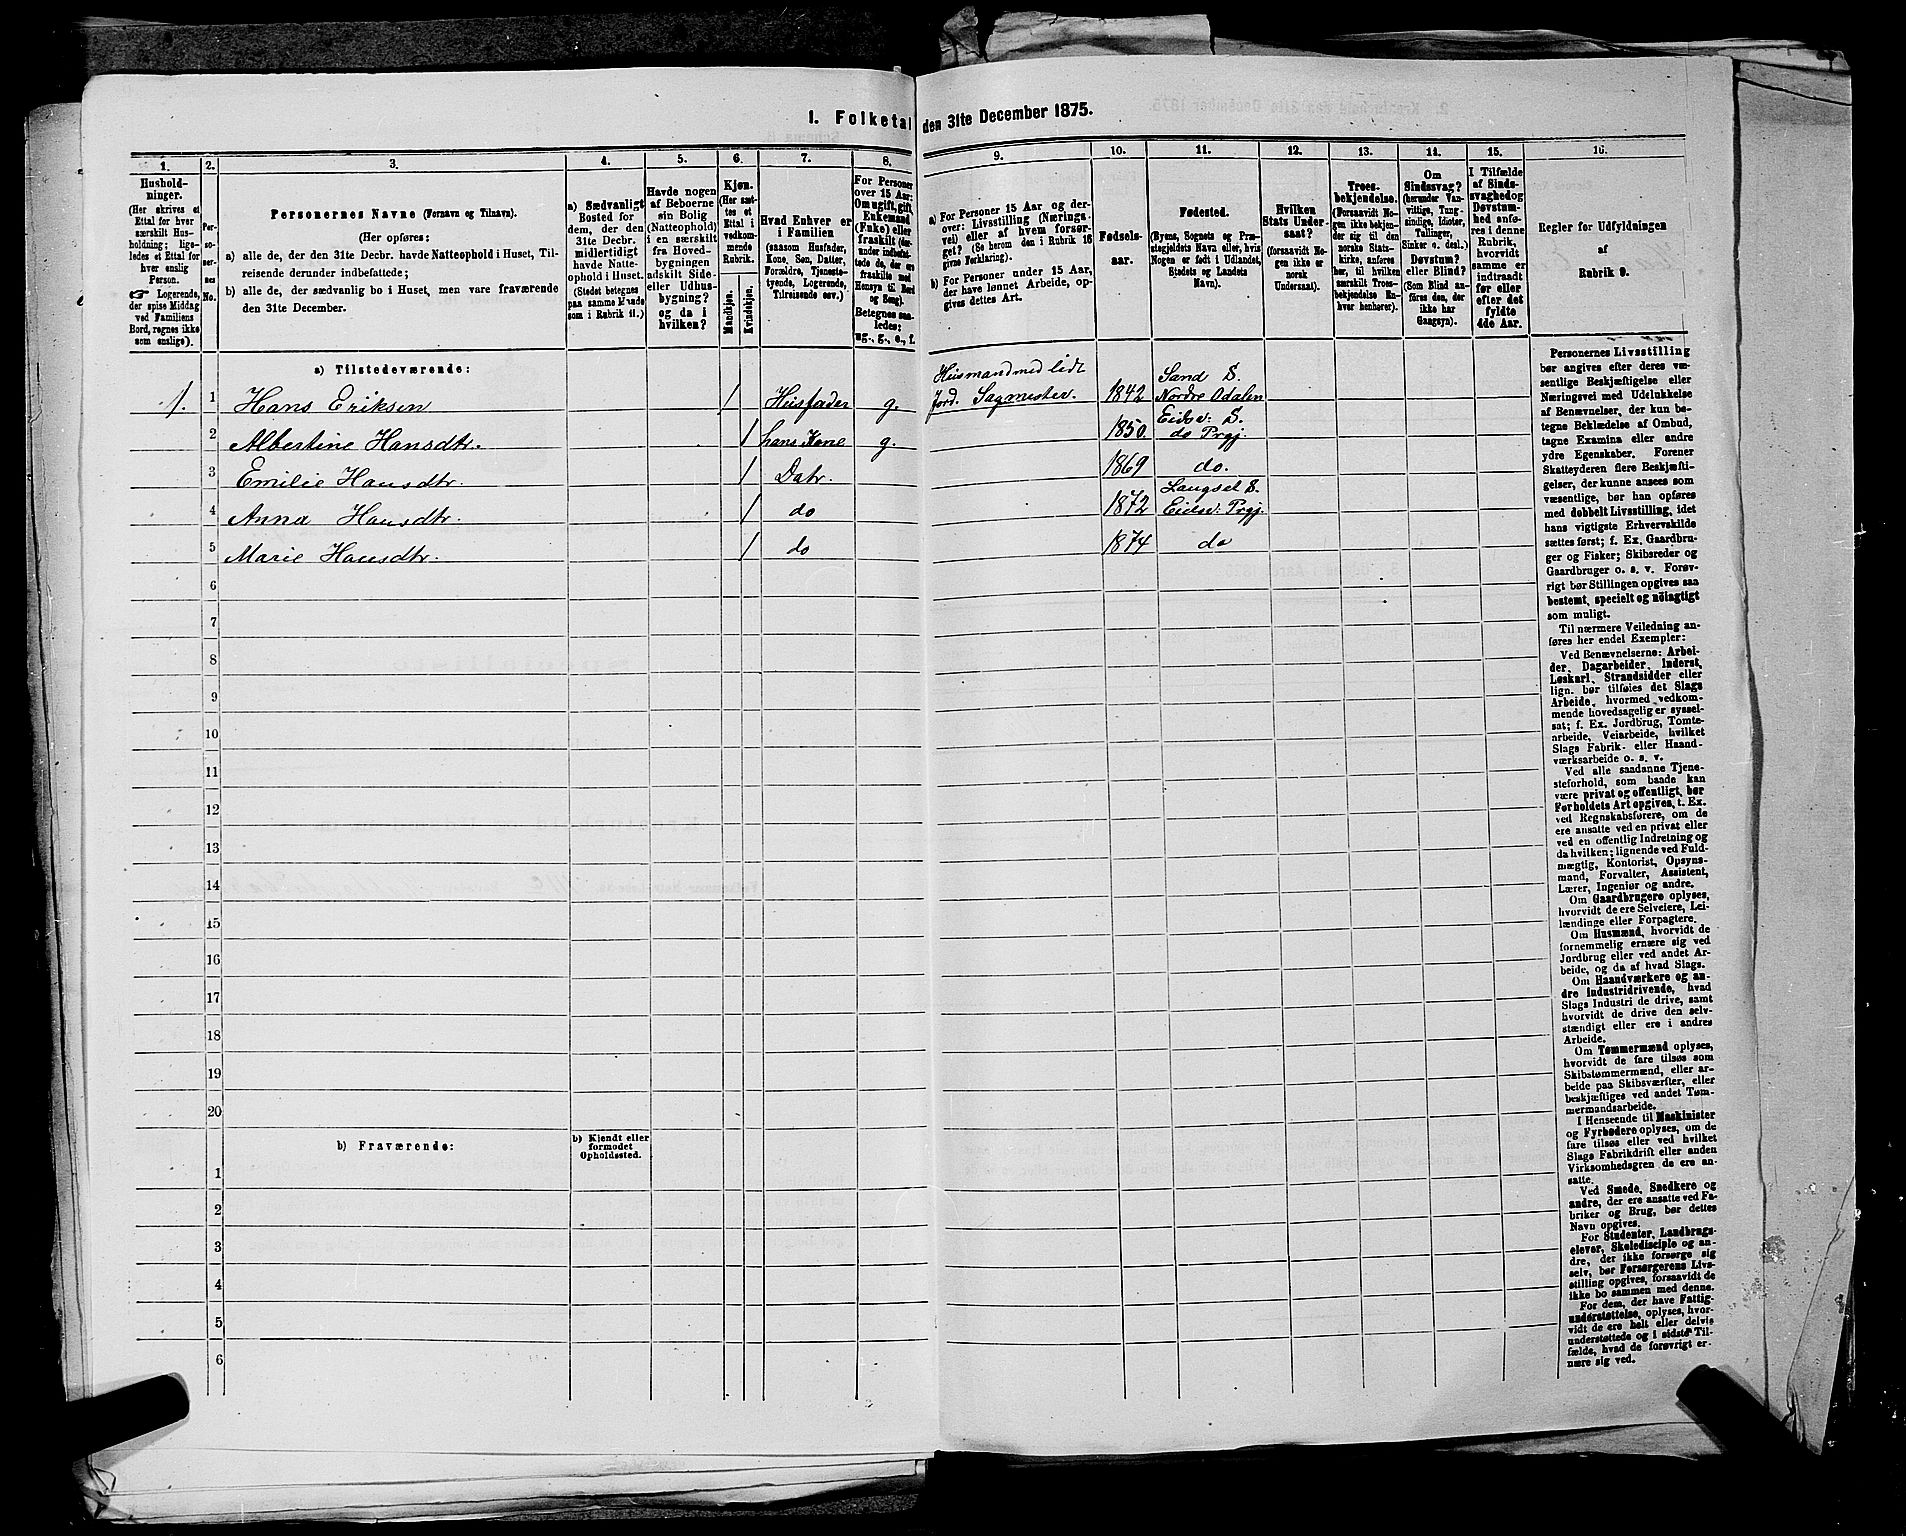 1. Folketal den 31te December 1875.
1. 2. 3. 4. 5. 6. 7. 8. 9. 10. 11. 12. 13. 14. 15. 16.
Hushold-
ninger.
(Her skrives et
Ettal for hver
særskilt Hus-
holdning; lige-
ledes et Ettal for
hver enslig
Person.
☞ Logerende,
der spise Middag
ved Familiens
Bord, regnes ikke
som enslige).
Per-
so-
ner-
nes
No.
Personernes Navne (Fornavn og Tilnavn).
(Her opføres:
a) alle de, der den 31te Decbr. havde Natteophold i Huset, Til-
reisende derunder indbefattede;
b) alle de, der sædvanlig bo i Huset, men vare fraværende
den 31te December.
a) Sædvanligt
Bosted for
dem, der den
31te Decbr.
midlertidigt
havde Natte-
ophold i Huset.
(Stedet betegnes
paa samme Maade
som i Rubrik 11.)
Havde nogen
af Beboerne
sin Bolig
(Natteophold)
i en særskilt
fra Hoved-
bygningen
adskilt Side-
eller Udhus-
bygning?
og da i
hvilken?
Kjøn.
(Her sæt-
tes et
Ettal i
vedkom-
mende
Rubrik.
Mandkjøn.
Kvindekjøn.
Hvad Enhver er
i Familien
(saasom Husfader,
Kone, Søn, Datter,
Forældre, Tjeneste-
tyende, Logerende,
Tilreisende osv.)
For Personer
over 15 Aar:
Om ugift, gift,
Enkemand
(Enke) eller
fraskilt (der-
under indbefat-
tede de, der ere
fraskilte med
Hensyn til Bord
og Seng).
Betegnes saa-
ledes:
ug., g., e., f.
a) For Personer 15 Aar og der-
over: Livsstilling (Nærings-
vei) eller af hvem forsør-
get? (Se herom den i Rubrik 16
givne Forklaring).
b) For Personer under 15 Aar,
der have lønnet Arbeide, op-
gives dettes Art.
Fødsels-
aar.
Fødested.
(Byens, Sognets og Præ-
stegjeldets Navn eller, hvis
Nogen er født i Udlandet,
Stedets og Landets
Navn).
Hvilken
Stats Under-
saat?
(forsaavidt No-
gen ikke er
norsk
Undersaat).
Troes-
bekjendelse.
(Forsaavidt No-
gen ikke bekjen-
der sig til den
norske Stats-
kirke, anføres
her, til hvilken
særskilt Troes-
bekjendelse En-
hver henhører).
Om
Sindssvag?
(herunder Van-
vittige, Tung-
sindige, Idioter,
Tullinger,
Sinker o. desl.)
Døvstum?
eller Blind?
(Som Blind an-
føres den, der
ikke har
Gangsyn).
I Tilfælde
af Sinds-
svaghed og
Døvstum-
hed anfø-
res i denne
Rubrik,
hvorvidt
samme er
indtraadt
før eller
efter det
fyldte
4de Aar.
Regler for Udfyldningen
af
Rubrik 9.
a) Tilstedeværende:
1. 1 Hans Eriksen 1 Husfader g. Husmand med lidt Jord. Sagmester. 1842 Sand S. Nordre Odalen
2 Albertine Hansdtr. 1 hans Kone g. 1850. Eidsv: S. do Prgj.
3 Emilie Hansdtr. 1 Datr. 1869 do.
4 Anna Hansdtr. 1 do 1872 Langset S. Eidsv: Prgj.
5 Marie Hansdtr. 1 do 1874 do
6
7
8
9
10
11
12
13
14
15
16
17
18
19
20
b) Fraværende:
b) Kjendt eller
formodet
Opholdssted.
1
2
3
4
5
6
Personernes Livsstilling
bør angives efter deres væ-
sentlige Beskjæftigelse eller
Næringsvei med Udelukkelse
af Benævnelser, der kun be-
tegne Beklædelse af Ombud,
tagne Examina eller andre
ydre Egenskaber. Forener
Skatteyderen flere Beskjæfti-
gelser, der kunne ansees som
væsentlige, bør han opføres
med dobbelt Livsstilling, idet
hans vigtigste Erhvervskilde
sættes først; f. Ex. Gaardbru-
ger og Fisker; Skibsreder og
Gaardbruger o. s. v. Forøv-
rigt bør Stillingen opgives saa
bestemt, specielt og nøiagtigt
som muligt.
Til nærmere Veiledning an-
føres her endel Exempler:
Ved Benævnelserne: Arbei-
der, Dagarbeider, Inderst,
Løskarl, Strandsidder eller
lign. bør tilføies det Slags
Arbeide, hvormed vedkom-
mende hovedsagelig er syssel-
sat; f. Ex. Jordbrug, Tomte-
arbeide, Veiarbeide, hvilket
Slags Fabrik- eller Haand-
værksarbeide o. s. v.
Ved alle saadanne Tjene-
steforhold, som baade kan
være privat og offentligt, bør
Forholdets Art opgives, t. Ex.
ved Regnskabsførere, om de
ere ansatte ved en privat eller
ved en offentlig Indretning og
da hvilken; lignende ved Fuld-
mægtig, Kontorist, Opsyns-
mand, Forvalter, Assistent,
Lærer, Ingeniør og andre.
Om Gaardbrugere oplyses,
hvorvidt de ere Selveiere, Lei-
lændinge eller Forpagtere.
Om Husmænd, hvorvidt de
fornemmelig ernære sig ved
Jordbrug eller ved andet Ar-
beide, og da af hvad Slags.
Om Haandværkere og an-
dre Industridrivende, hvad
Slags Industri de drive, samt
hvorvidt de drive den selv-
stændigt eller ere i andres
Arbeide.
Om Tømmermænd oplyses,
hvorvidt de fare tilsøs som
Skibstømmermænd, eller ar-
beide paa Skibsværfter, eller
beskjæftiges ved andet Tøm-
mermandsarbeide.
I Henseende til Maskinister
og Fyrbødere oplyses, om de
fare tilsøs eller ved hvilket
Slags Fabrikdrift eller anden
Virksomhedsgren de ere an-
satte.
Ved Smede, Snedkere og
andre, der ere ansatte ved Fa-
briker og Brug, bør dettes
Navn opgives.
For Studenter, Landbrugs-
elever, Skoledisciple og an-
dre, der ikke forsørge sig
selv, bør Forsørgerens Livs-
stilling opgives, forsaavidt de
ikke bo sammen med denne.
For dem, der have Fattig-
understøttelse, oplyses, hvor-
vidt de ere helt eller delvis
understøttede og i sidste Til-
fælde, hvad de forøvrigt er-
nære sig ved.